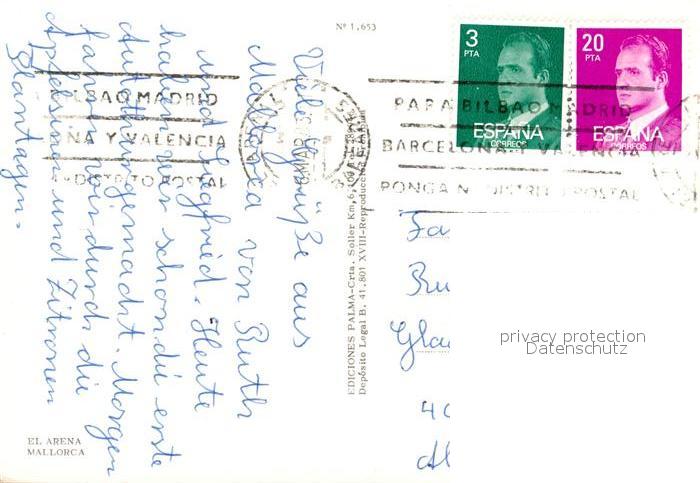 Nº 1.653
3
PTA
ESPAÑA
CORREOS
20
PTA
ESPAÑA
CORREOS
BILBAO MADRID
ÑA Y VALENCIA
DISTRITO POSTAL
PARA BILBAO MADRID
BARCELONA Y VALENCIA
PONGA N DISTRITO POSTAL
Viele Grüße aus
Mallorca von Ruth
und Siegfried. Heute
haben wir schon die erste
Autotour gemacht. Morgen
fahren wir durch die
Apfelsinen und Zitronen
Plantagen.
EDICIONES PALMA-Crta. Soller Km. 6,100
Depósito Legal B. 41.801 XVIII-Reproducción
Fa
Ru
Gla
40
Al
privacy protection
Datenschutz
EL ARENAL
MALLORCA